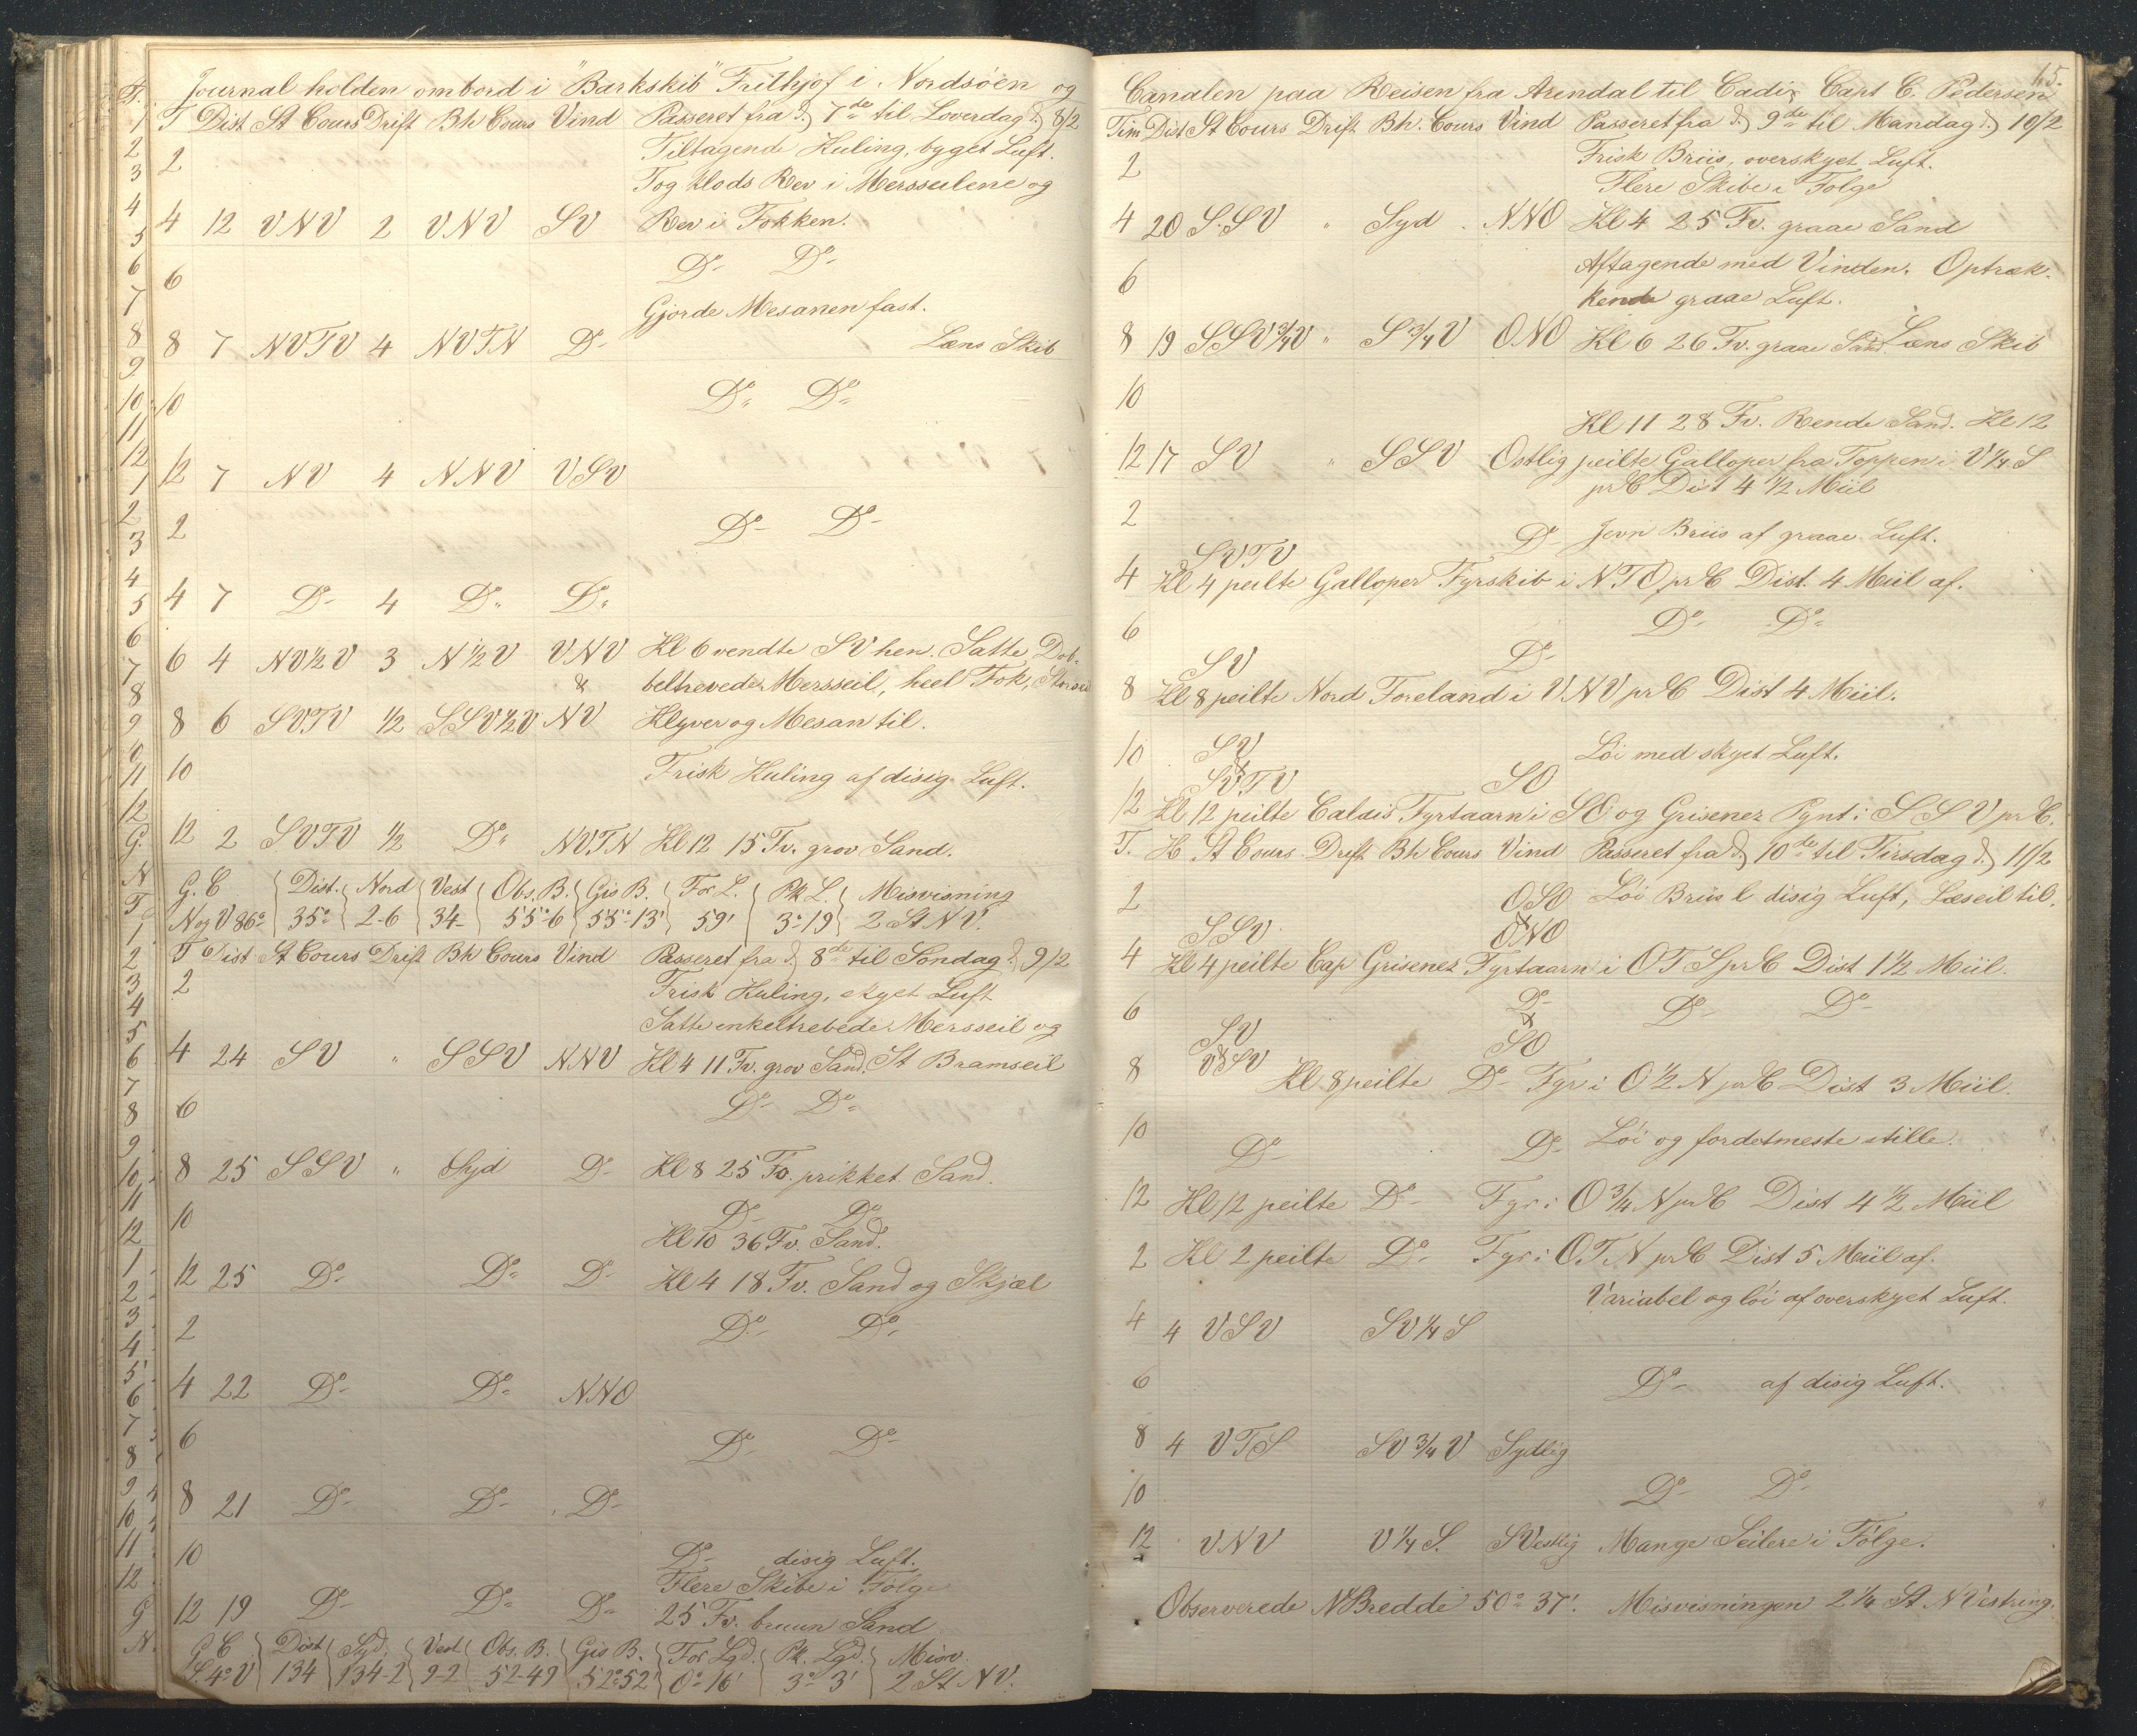 Journal holden ombord i "Barkskib" Frithjof i Nordsöen og
T Dist St Cours Drift Bh Cours Vind Passeret fra d. 7de til Loverdag d. 8/2
2 Tiltagende Kuling, byget Luft.
Tog Klods Rev i Mersseilene og
4 12 VNV 2 VNV SV Rev i Fokken.
6 Do Do
Gjorde Mesanen fast.
8 7 NVTV 4 NVTN Do Læns Skib
10 Do Do
12 7 NV 4 NNV VSV
2 Do Do
4 7 Do 4 Do Do
6 4 NV½V 3 N½V VNV Kl 6 vendte SV hen. Satte Dob-
& beltrevede Mersseil, heel Fok,
8 6 SVTV ½ SSV½V NV Klyver og Mesan til.
10 Frisk Kuling af disig Luft.
12 2 SVTV ½ Do NVTN Kl 12 15 Fv. grov Sand.
G. C Dist. Nord Vest Obs. B. Gis B. For L. Pk L. Misvisning
N og V 86° 35° 2-6 34- 55°6 55°-13' 59' 3°19 2 St NV.
T Dist St Cours Drift Bh Cours Vind Passeret fra d. 8de til Sondag d. 9/2
2 Frisk Kuling, skyet Luft
Satte enkeltrebede Mersseil og
4 24 SV " SSV NNV Kl 4 11 Fv. grov Sand. St Bramseil
6 Do Do
8 25 SSV " Syd Do Kl 8 25 Fv. prikket Sand.
10 Do Do
Kl 10 36 Fv. Sand.
12 25 Do Do Do Kl 4 18 Fv. Sand og Skjæl
2 Do Do
4 22 Do Do NNO
6 Do Do
8 21 Do Do Do
10 Do disig Luft.
Flere Skibe i Følge
12 19 Do Do Do 25 Fv. bruun Sand
G C Dist Syd. Vest Obs. B. Gis B. For Lgd. Pk. Lgd. Misv.
S.4°V 134 134-2 9-2 52-49 52°52' 0°16' 3°3' 2 St NV.
15.
Canalen paa Reisen fra Arendal til Cadix Capt C. Pedersen
Tim Dist St Cours Drift Bh. Cours Vind Passeret fra d. 9de til Mandag d. 10/2
2 Frisk Briis, overskyet Luft.
Flere Skibe i Følge
4 20 S.SV " Syd NNO Kl 4 25 Fv. graae Sand
6 Aftagende med Vinden. Optræk-
kende graae Luft.
8 19 SSV¾V " S¾V ONO Kl 6 26 Fv. graae Sand. Læns Skib
10
Kl 11 28 Fv. Rende Sand. Kl 12
12 17 SV " SSV Ostlig peilte Galloper fra Toppen i V¼S
pr C Dist 4½ Miil
2 Do Jevn Briis af graae Luft.
SVTV
4 Kl 4 peilte Galloper Fyrskib i NTO pr C Dist. 4 Miil af.
6 Do Do
SV Do
8 Kl 8 peilte Nord Foreland i VNV pr C Dist 4 Miil.
10 SV Löi med skyet Luft.
&
SVTV SO
12 Kl 12 peilte Calais Fyrtaarn i SO og Grisenez Pynt i SSV pr C.
T. H St Cours Drift Bh Cours Vind Passeret fra d. 10de til Tirsdag d. 11/2
2 OSO Löi Briis l disig Luft, Læseil til.
SSV & ONO
4 Kl 4 peilte Cap Grisenez Fyrtaarn i OTS pr C Dist 1½ Miil.
6 Do Do Do
SV & SO
8 & VSV Kl 8 peilte Do Fyr i O½N pr C Dist 3 Miil.
10 Do Do Löi og fordetmeste stille.
12 Kl 12 peilte Do Fyr i O¾N pr C Dist 4½ Miil
2 Kl 2 peilte Do Fyr i O.T.N pr C Dist 5 Miil af.
Variabel og löi af overskyet Luft.
4 4 VSV SV¼S
6 Do af disig Luft.
8 4 VTS SV¾V Sydlig
10 Do Do
12 VNV V¼S. SVestlig Mange Seilere i Følge.
Observerede N Bredde 50° 37'. Misvisningen 2¼ St N Vestring.